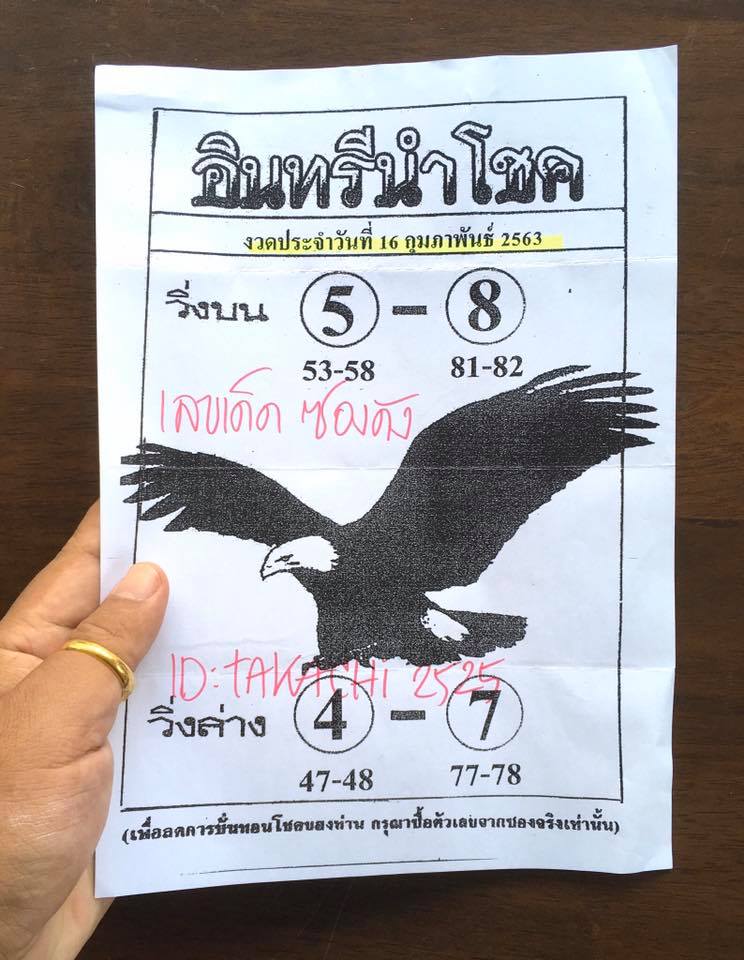 อินทรีนำโชค
งวดประจำวันที่ 16 กุมภาพันธ์ 2563
วิ่งบน 5 - 8
53-58 81-82
เลขเด็ด ซองดัง
ID: TAKACHi 2525
วิ่งล่าง 4 - 7
47-48 77-78
(เพื่อลดการบั่นทอนโชคของท่าน กรุณาซื้อตัวเลขจากซองจริงเท่านั้น)